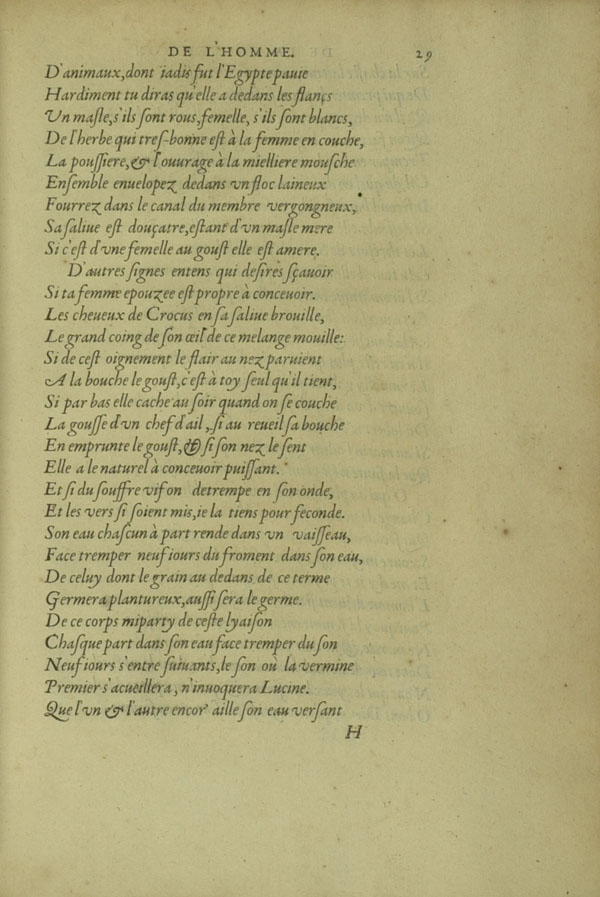 DE L'HOMME. 29
D'animaux, dont iadis fut l'Egypte pauie
Hardiment tu diras qu'elle a dedans les flancs
Vn masle, s'ils sont rous, femelle, s'ils sont blancs,
De l'herbe qui tres-bonne est à la femme en couche,
La poussiere, & l'ouurage à la mielliere mousche
Ensemble enuelopez dedans vn floc laineux
Fourrez dans le canal du membre vergongneux,
Sa saliue est douçatre, estant d'vn masle mere
Si c'est d'vne femelle au goust elle est amere.
D'autres signes entens qui desires sçauoir
Si ta femme epouzee est propre à conceuoir.
Les cheueux de Crocus en sa saliue brouille,
Le grand coing de son œil de ce melange mouille:
Si de cest oignement le flair au nez paruient
A la bouche le goust, c'est à toy seul qu'il tient,
Si par bas elle cache au soir quand on se couche
La gousse d'vn chef d'ail, si au reueil sa bouche
En emprunte le goust, & si son nez le sent
Elle a le naturel à conceuoir puissant.
Et si du souffre vif on detrempe en son onde,
Et les vers si soient mis, ie la tiens pour feconde.
Son eau chascun à part rende dans vn vaisseau,
Face tremper neuf iours du froment dans son eau,
De celuy dont le grain au dedans de ce terme
Germera plantureux, aussi sera le germe.
De ce corps miparty de ceste lyaison
Chasque part dans son eau face tremper du son
Neuf iours s'entre suiuants, le son où la vermine
Premier s'acueillera, n'inuoquera Lucine.
Que l'vn & l'autre encor' aille son eau versant
H